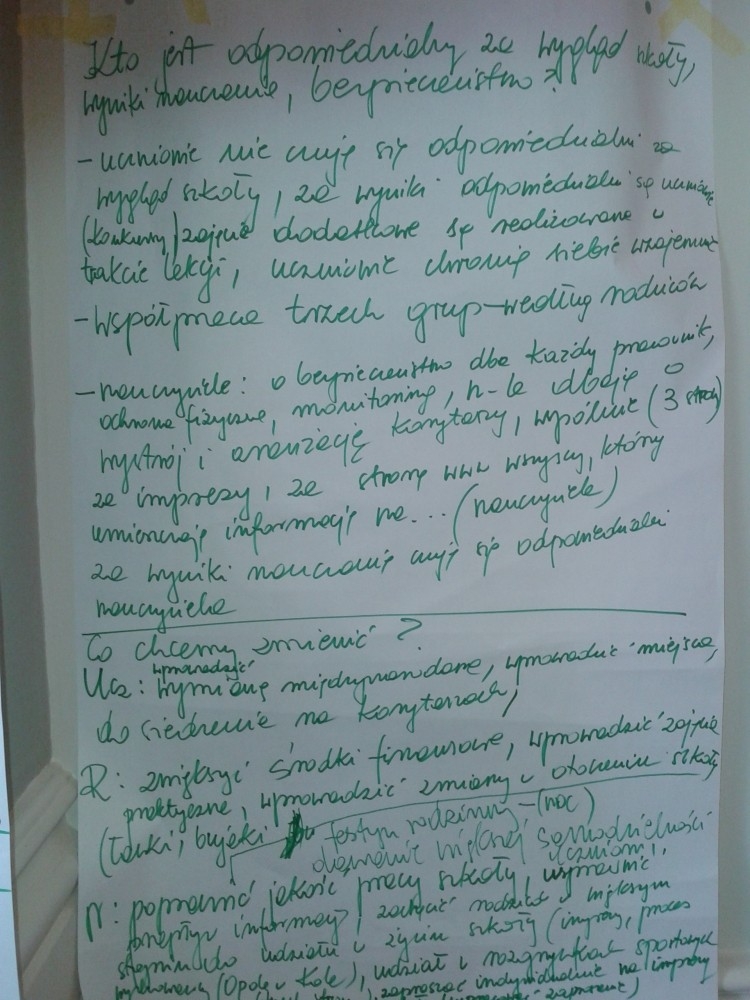 Kto jest odpowiedzialny za wygląd szkoły,
wyniki nauczania, bezpieczeństwo?
- uczniowie nie czują się odpowiedzialni za
wygląd szkoły, za wyniki odpowiedzialni są uczniowie
(konkursy) zajęcia dodatkowe są realizowane w
trakcie lekcji, uczniowie chronią siebie wzajemnie
- współpraca trzech grup - według rodziców
- nauczyciele: o bezpieczeństwo dba każdy pracownik,
ochrona fizyczna, monitoring, n-le dbają o
wystrój i aranżację korytarzy, wspólnie (3 strony)
za imprezy, za stronę www wszyscy, którzy
umieszczają informacje na... (nauczyciele)
za wyniki nauczania czują się odpowiedzialni
nauczyciele
Co chcemy zmienić?
wprowadzić
Ucz: wymianę międzynarodową, wprowadzić miejsca
do siedzenia na korytarzach,
R: zwiększyć środki finansowe, wprowadzić zajęcia
praktyczne, wprowadzić zmiany w otoczeniu szkoły
(ławki, bujaki festyn rodzinny - (noc)
większej samodzielności
uczniom,
N: poprawić jakość pracy szkoły, usprawnić
przepływ informacji, zachęcić rodziców w większym
stopniu do udziału w życiu szkoły (imprezy, proces
(Opole, Koło), udział w rozgrywkach sportowych
zapraszać indywidualnie na imprezy